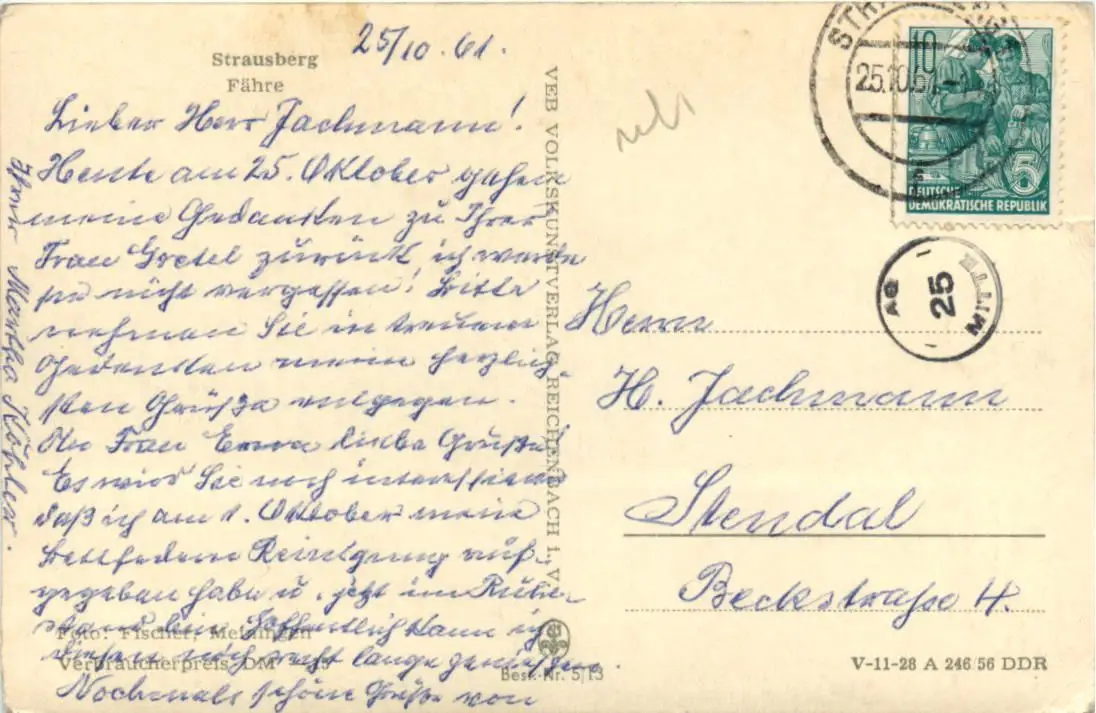 25/10.61.
Strausberg
Fähre
Lieber Herr Jachmann!
Heute am 25. Oktober gehen
meine Gedanken zu Ihrer
Frau Gretel zurück ich werde
sie nicht vergessen! Bitte
nehmen Sie in treuem
Gedenken meine herzlich-
sten Grüße entgegen.
Frau Erna liebe Grüße!
Es wird Sie noch interessieren
daß ich am 1. Oktober meine
Bettfedern Reinigung auf-
gegeben habe u. jetzt im Ruhe-
stand bin hoffentlich kann ich
diesen noch recht lange genießen.
Nochmals schöne Grüße von
Ihrer Martha Köhler.
Foto: Fischer, Meiningen
Verbraucherpreis DM
Best.-Nr. 5/13
VEB VOLKSKUNSTVERLAG REICHENBACH i. V.
STRAUSBERG
25.10.61
10
5
DEUTSCHE
DEMOKRATISCHE REPUBLIK
AG
25
MITTE
Herrn
H. Jachmann
Stendal
Beckstraße 4.
V-11-28 A 246/56 DDR